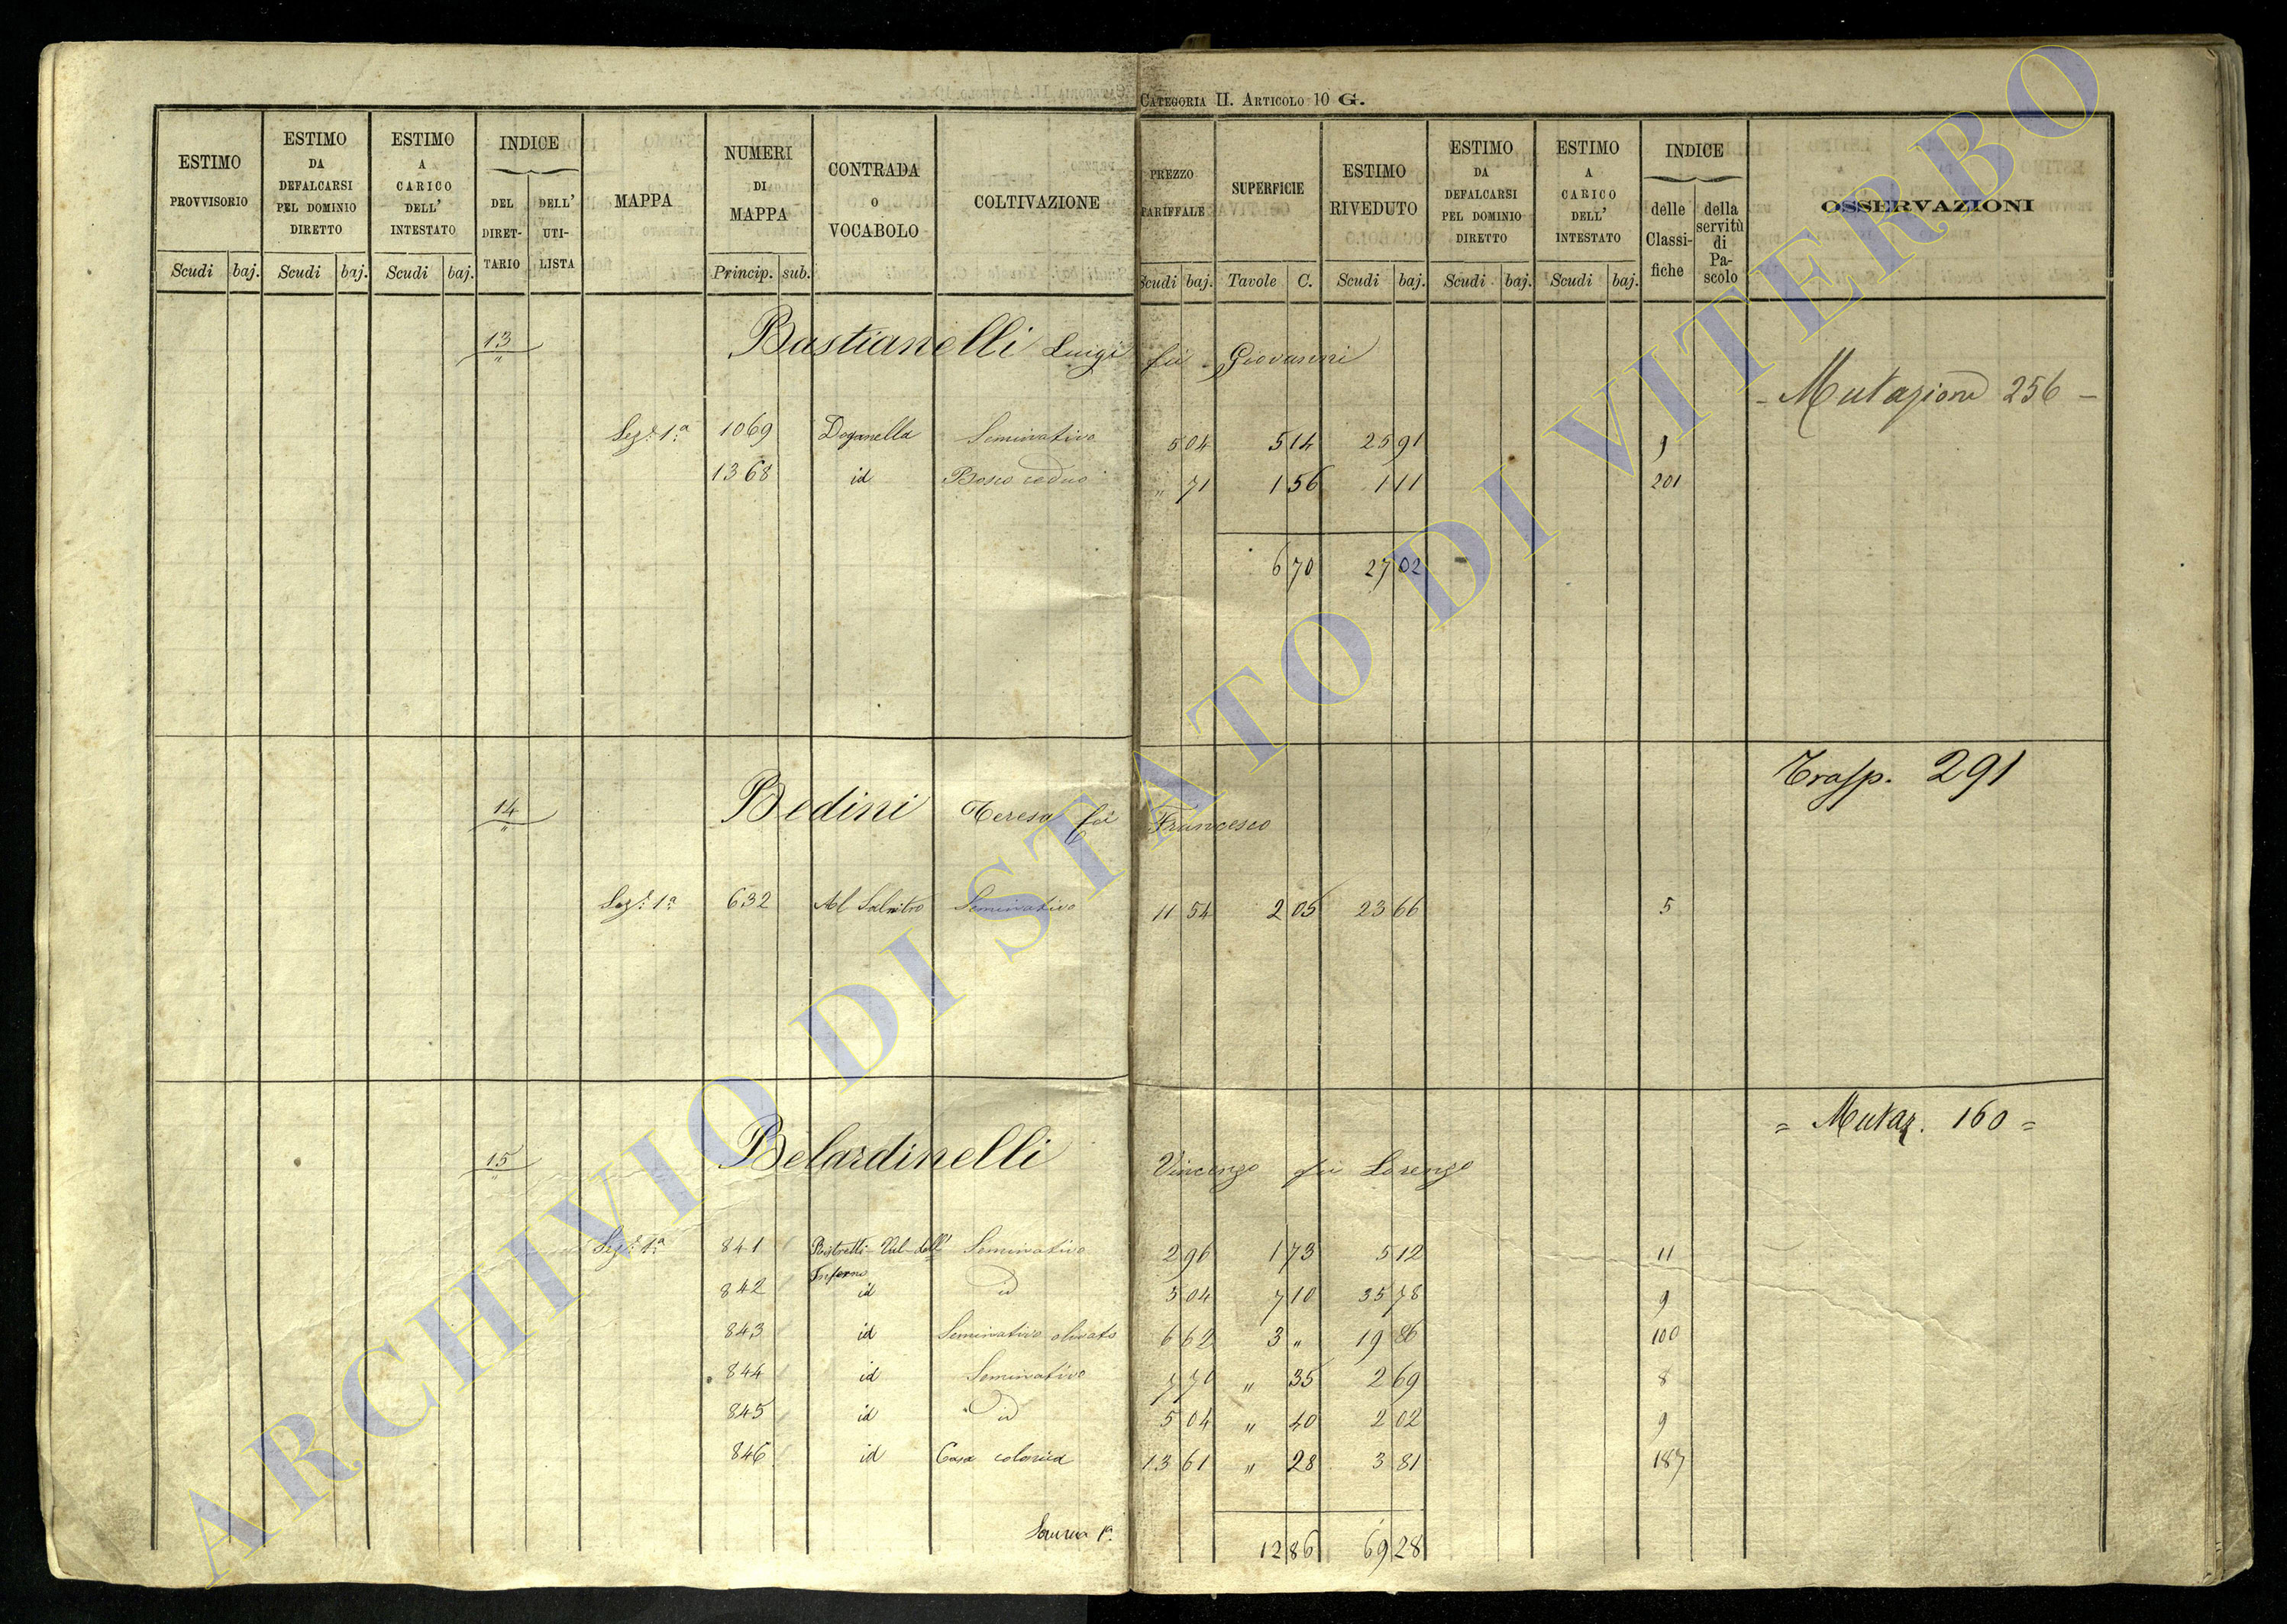 CATEGORIA II. ARTICOLO 10 G.
ESTIMO PROVVISORIO Scudi baj. ESTIMO DA DEFALCARSI PEL DOMINIO DIRETTO Scudi baj. ESTIMO A CARICO DELL' INTESTATO Scudi baj. INDICE DEL DIRETTARIO DELL' UTILISTA MAPPA NUMERI DI MAPPA Princip. sub. CONTRADA o VOCABOLO COLTIVAZIONE PREZZO TARIFFALE Scudi baj. SUPERFICIE Tavole C. ESTIMO RIVEDUTO Scudi baj. ESTIMO DA DEFALCARSI PEL DOMINIO DIRETTO Scudi baj. ESTIMO A CARICO DELL' INTESTATO Scudi baj. INDICE delle Classifiche della servitù di Pascolo OSSERVAZIONI
13 Bastianelli Luigi fu Giovanni
- Mutazione 256 -
Sez.e 1.a 1069 Doganella Seminativo 5 04 5 14 25 91 9
1368 id Bosco ceduo " 71 1 56 1 11 201
6 70 27 02
Trasp. 291
14 Bedini Teresa fu Francesco
Sez.e 1.a 632 Al Salnitro Seminativo 11 54 2 05 23 66 5
= Mutaz. 160 =
15 Belardinelli Vincenzo fu Lorenzo
Sez.e 1.a 841 Ristretti Val dell' Inferno Seminativo 2 96 1 73 5 12 11
842 id id 5 04 7 10 35 78 9
843 id Seminativo olivato 6 62 3 " 19 86 100
844 id Seminativo 7 70 " 35 2 69 8
845 id id 5 04 " 40 2 02 9
846 id Casa colonica 13 61 " 28 3 81 187
Somma 1a 12 86 69 28
ARCHIVIO DI STATO DI VITERBO